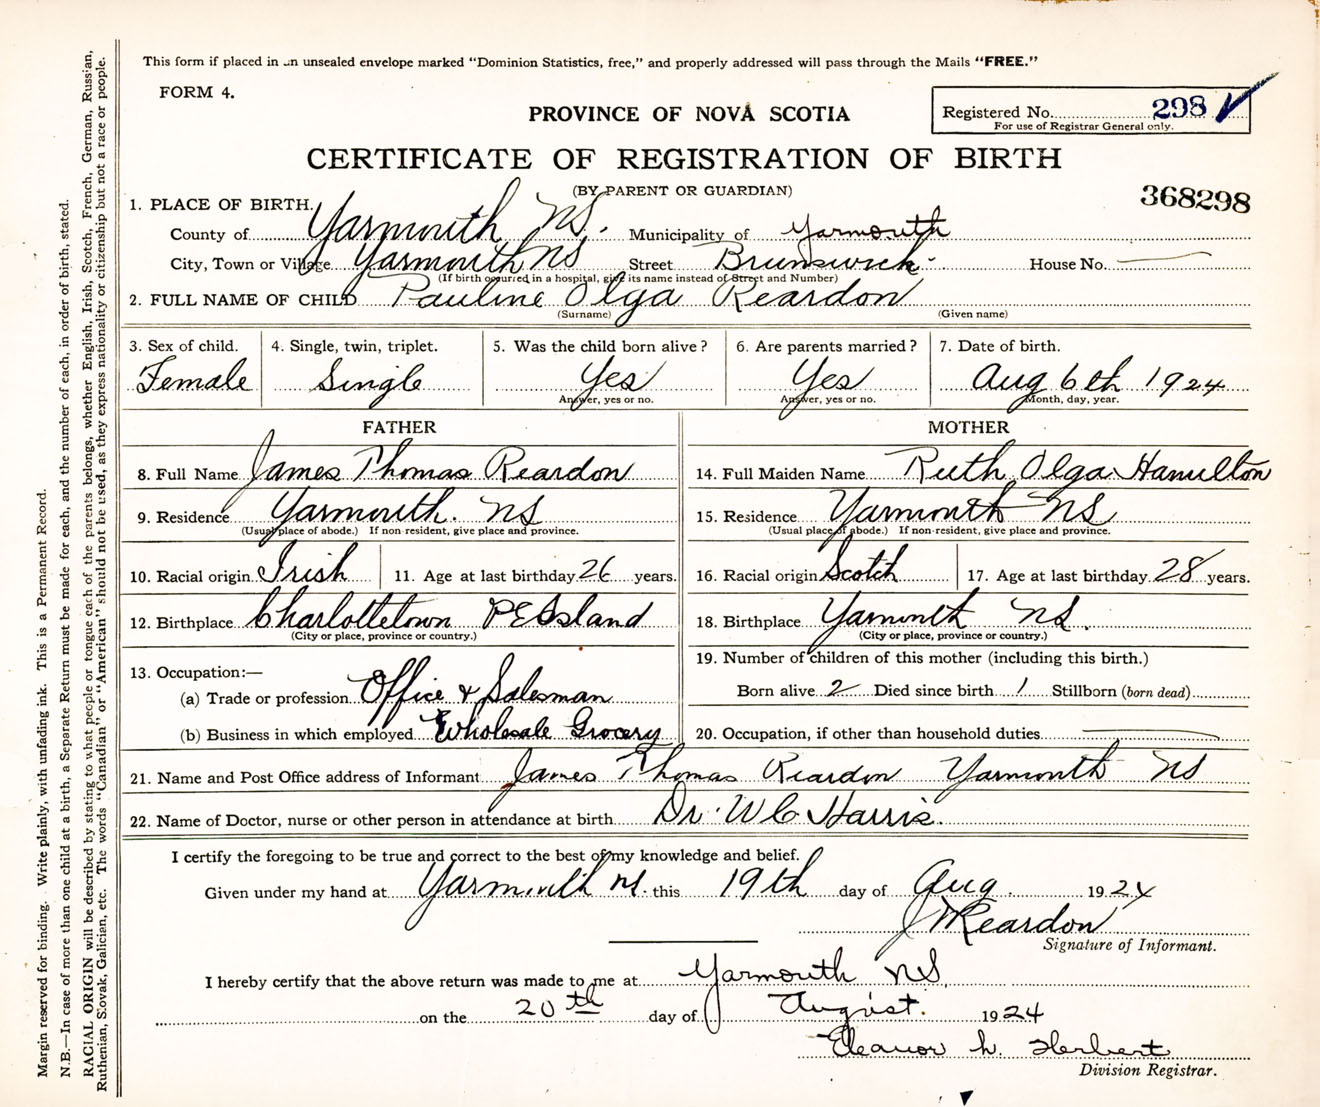 This form if placed in an unsealed envelope marked "Dominion Statistics, free," and properly addressed will pass through the Mails "FREE."
FORM 4.
PROVINCE OF NOVA SCOTIA
Registered No. 298
For use of Registrar General only.
CERTIFICATE OF REGISTRATION OF BIRTH
(BY PARENT OR GUARDIAN)
368298
1. PLACE OF BIRTH.
County of Yarmouth NS. Municipality of Yarmouth
City, Town or Village Yarmouth NS Street Brunswick House No.
(If birth occurred in a hospital, give its name instead of Street and Number)
2. FULL NAME OF CHILD Pauline Olga Reardon
(Surname) (Given name)
3. Sex of child. 4. Single, twin, triplet. 5. Was the child born alive? 6. Are parents married? 7. Date of birth.
Female Single Yes Yes Aug 6th 1924
Answer, yes or no. Answer, yes or no. Month, day, year.
FATHER MOTHER
8. Full Name James Thomas Reardon 14. Full Maiden Name Ruth Olga Hamilton
9. Residence Yarmouth. NS 15. Residence Yarmouth NS
(Usual place of abode.) If non-resident, give place and province. (Usual place of abode.) If non-resident, give place and province.
10. Racial origin Irish 11. Age at last birthday 26 years. 16. Racial origin Scotch 17. Age at last birthday 28 years.
12. Birthplace Charlottetown PEIsland 18. Birthplace Yarmouth NS.
(City or place, province or country.) (City or place, province or country.)
13. Occupation:— 19. Number of children of this mother (including this birth.)
(a) Trade or profession Office & Salesman Born alive 2 Died since birth 1 Stillborn (born dead)
(b) Business in which employed Wholesale Grocery 20. Occupation, if other than household duties
21. Name and Post Office address of Informant James Thomas Reardon Yarmouth NS
22. Name of Doctor, nurse or other person in attendance at birth Dr. W C Harris.
I certify the foregoing to be true and correct to the best of my knowledge and belief.
Given under my hand at Yarmouth NS. this 19th day of Aug. 1924
J Reardon
Signature of Informant.
I hereby certify that the above return was made to me at Yarmouth NS
on the 20th day of August. 1924
Eleanor h. Herbert
Division Registrar.
Margin reserved for binding. Write plainly, with unfading ink. This is a Permanent Record.
N.B.—In case of more than one child at a birth, a Separate Return must be made for each, and the number of each, in order of birth, stated.
RACIAL ORIGIN will be described by stating to what people or tongue each of the parents belongs, whether English, Irish, Scotch, French, German, Russian,
Ruthenian, Slovak, Galician, etc. The words "Canadian" or "American" should not be used, as they express nationality or citizenship but not a race or people.